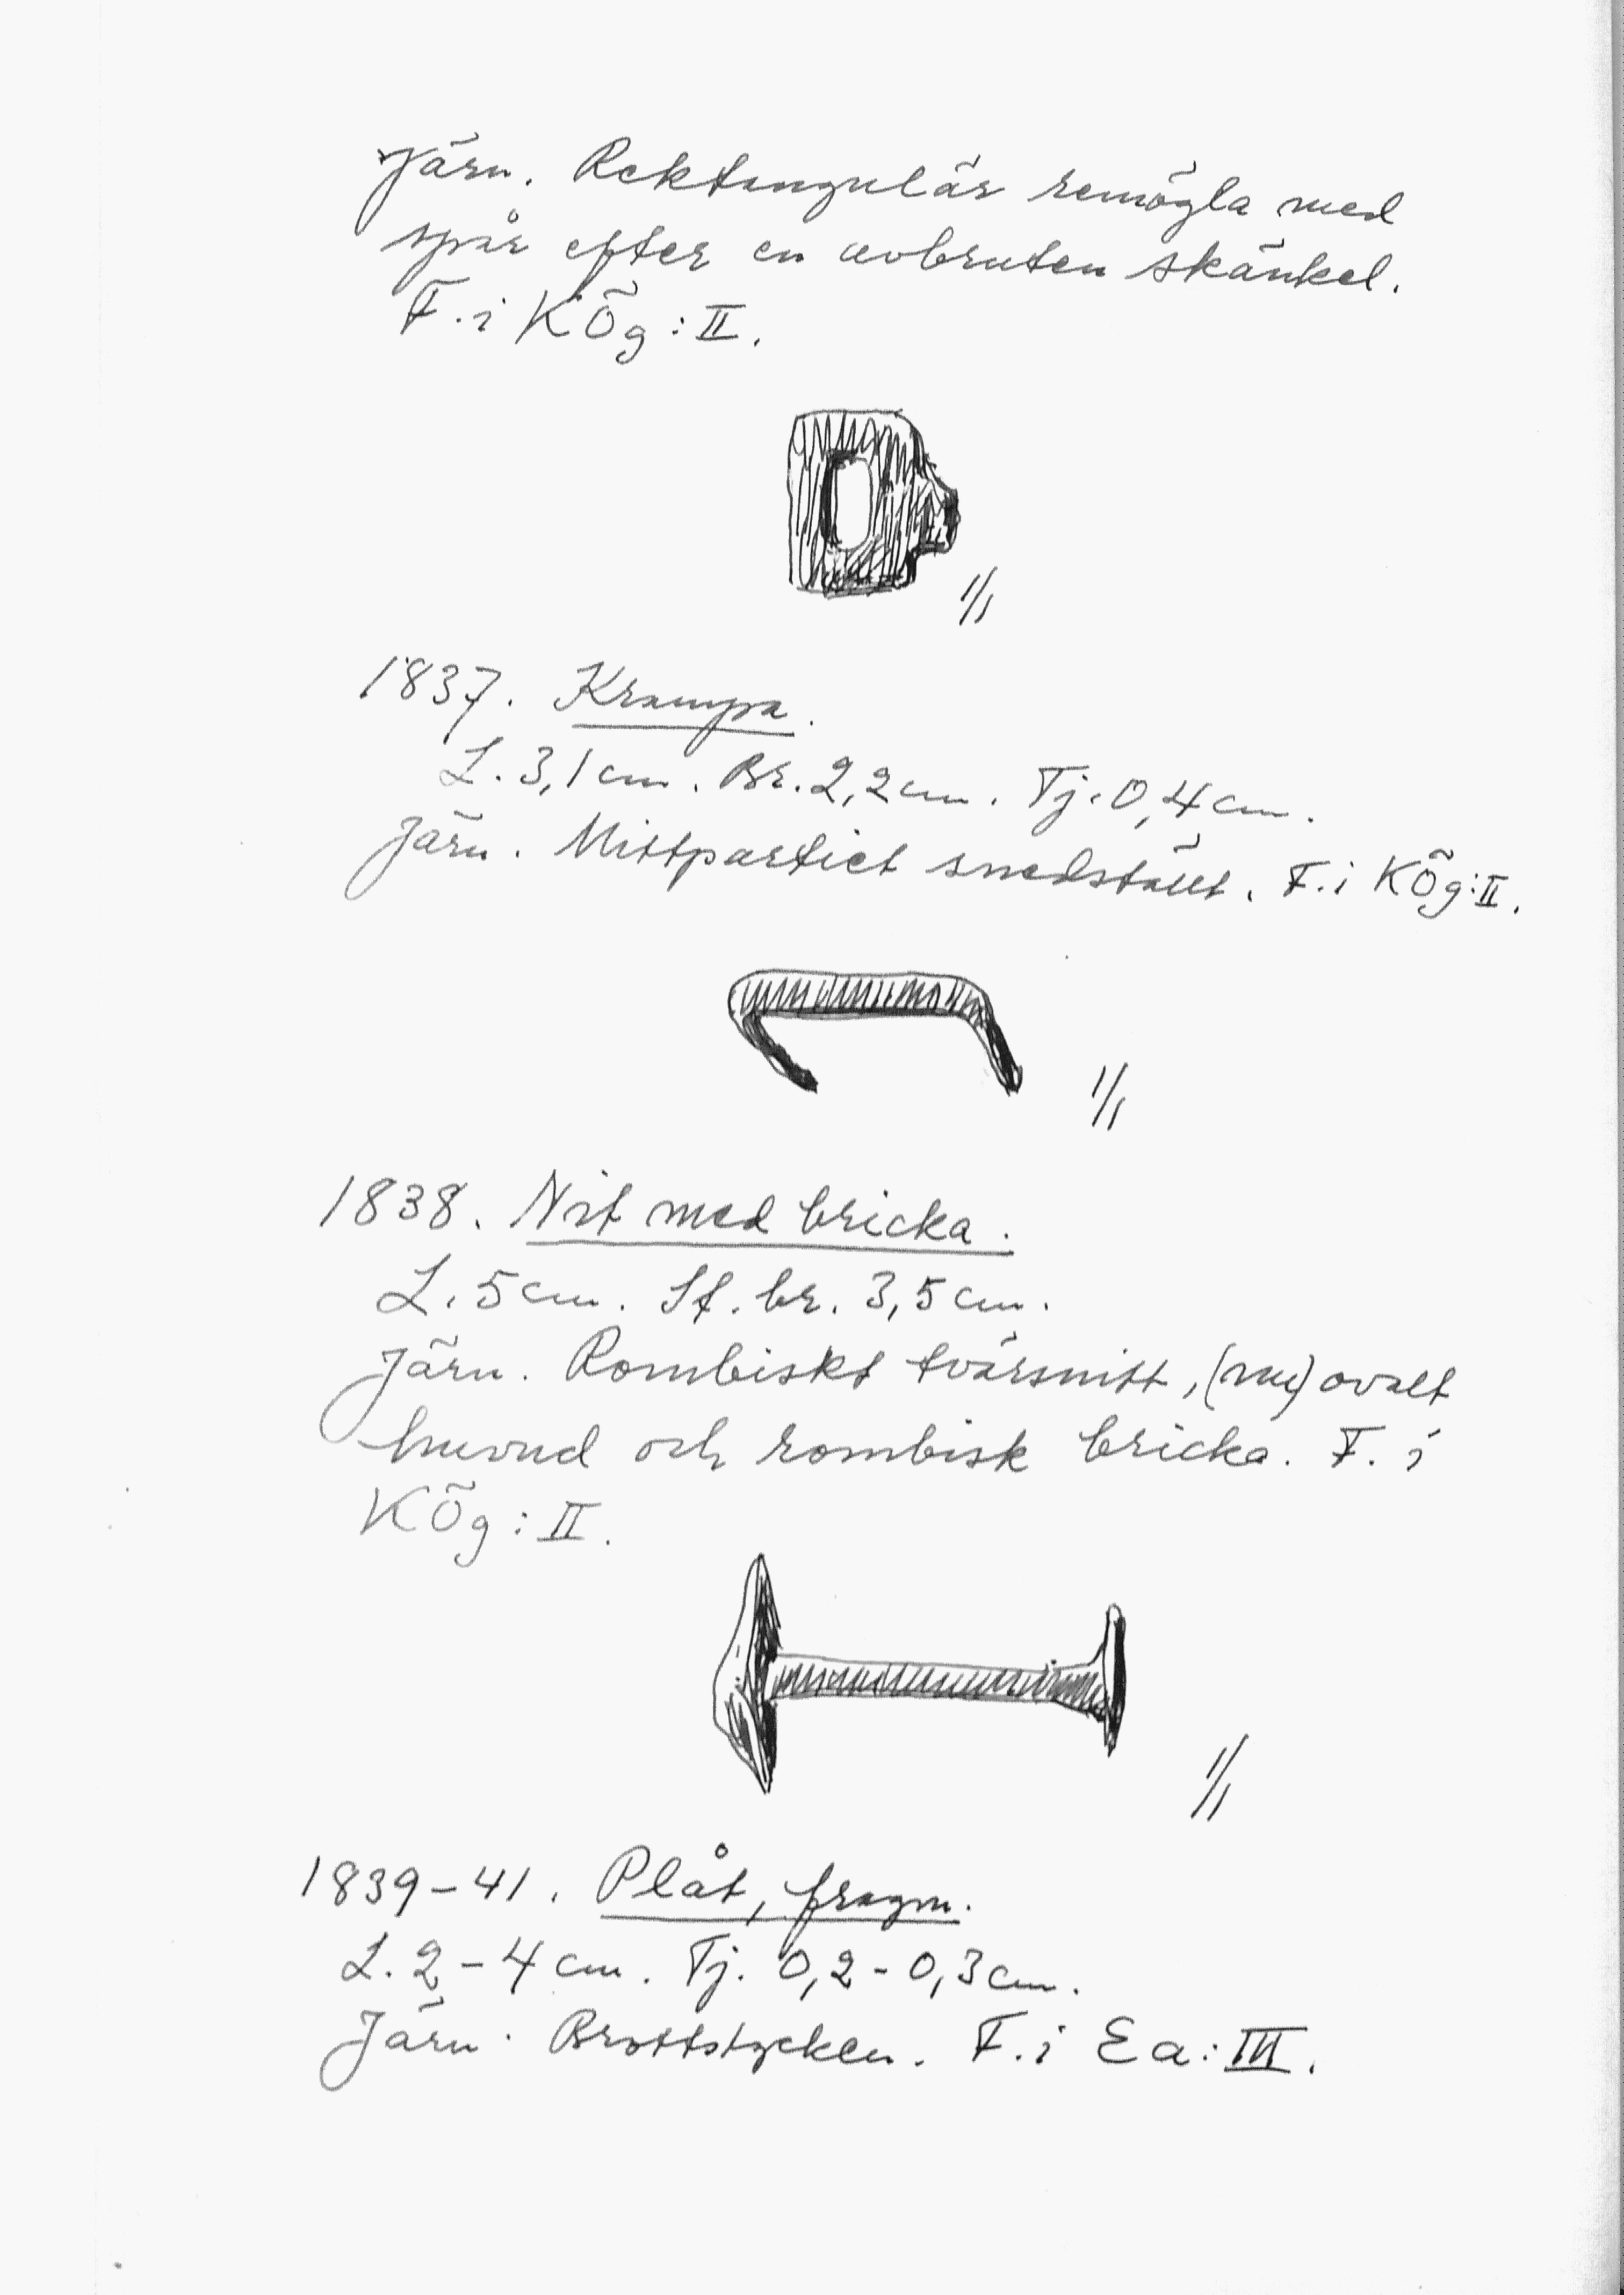 Järn. Rektangulär remögla med
spår efter en avbruten skänkel.
F. i KÖg: II.
1/1
1837. Krampa.
L. 3,1 cm. Br. 2,2 cm. Tj. 0,4 cm.
Järn. Mittpartiet snedställt. F. i KÖg: II.
1/1
1838. Nit med bricka.
L. 5 cm. St. br. 3,5 cm.
Järn. Rombiskt tvärsnitt, (nu) ovalt
huvud och rombisk bricka. F. i
KÖg: II.
1/1
1839-41. Plåt, fragm.
L. 2-4 cm. Tj. 0,2-0,3 cm.
Järn. Brottstycken. F. i Ea: III.